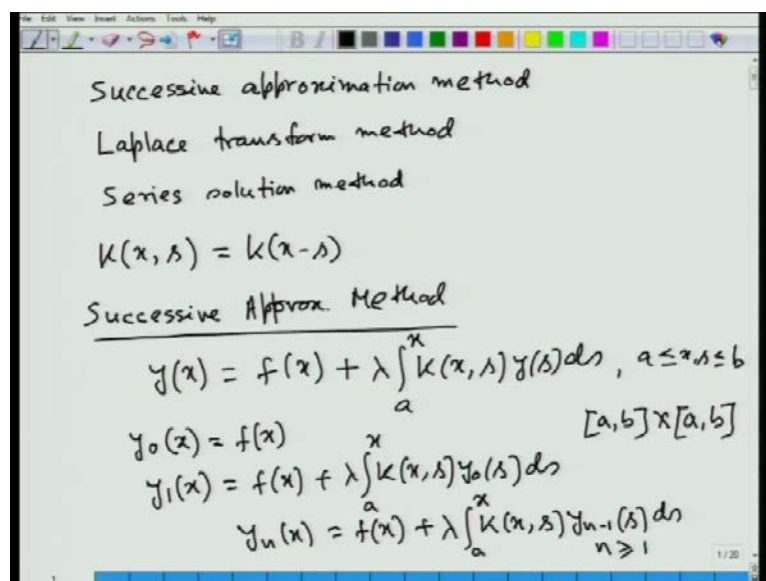 File Edit View Insert Actions Tools Help
B I
Successive approximation method
Laplace transform method
Series solution method
K(x, s) = k(x-s)
Successive Approx. Method
y(x) = f(x) + λ∫ₐˣ K(x, s) y(s) ds, a ≤ x, s ≤ b
[a, b] × [a, b]
y₀(x) = f(x)
y₁(x) = f(x) + λ∫ₐˣ K(x, s) y₀(s) ds
yₙ(x) = f(x) + λ∫ₐˣ K(x, s) yₙ₋₁(s) ds
n ≥ 1
1/20